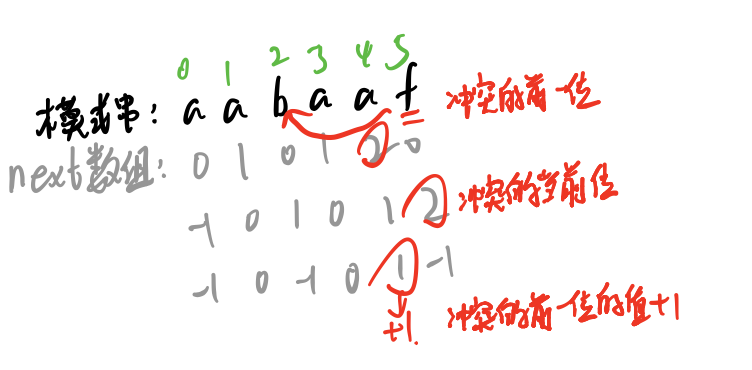 0 1 2 3 4 5
模式串: a a b a a f 冲突的前一位
next数组: 0 1 0 1 2 0
-1 0 1 0 1 2 冲突的当前位
-1 0 -1 0 1 -1
+1. 冲突的前一位的值+1